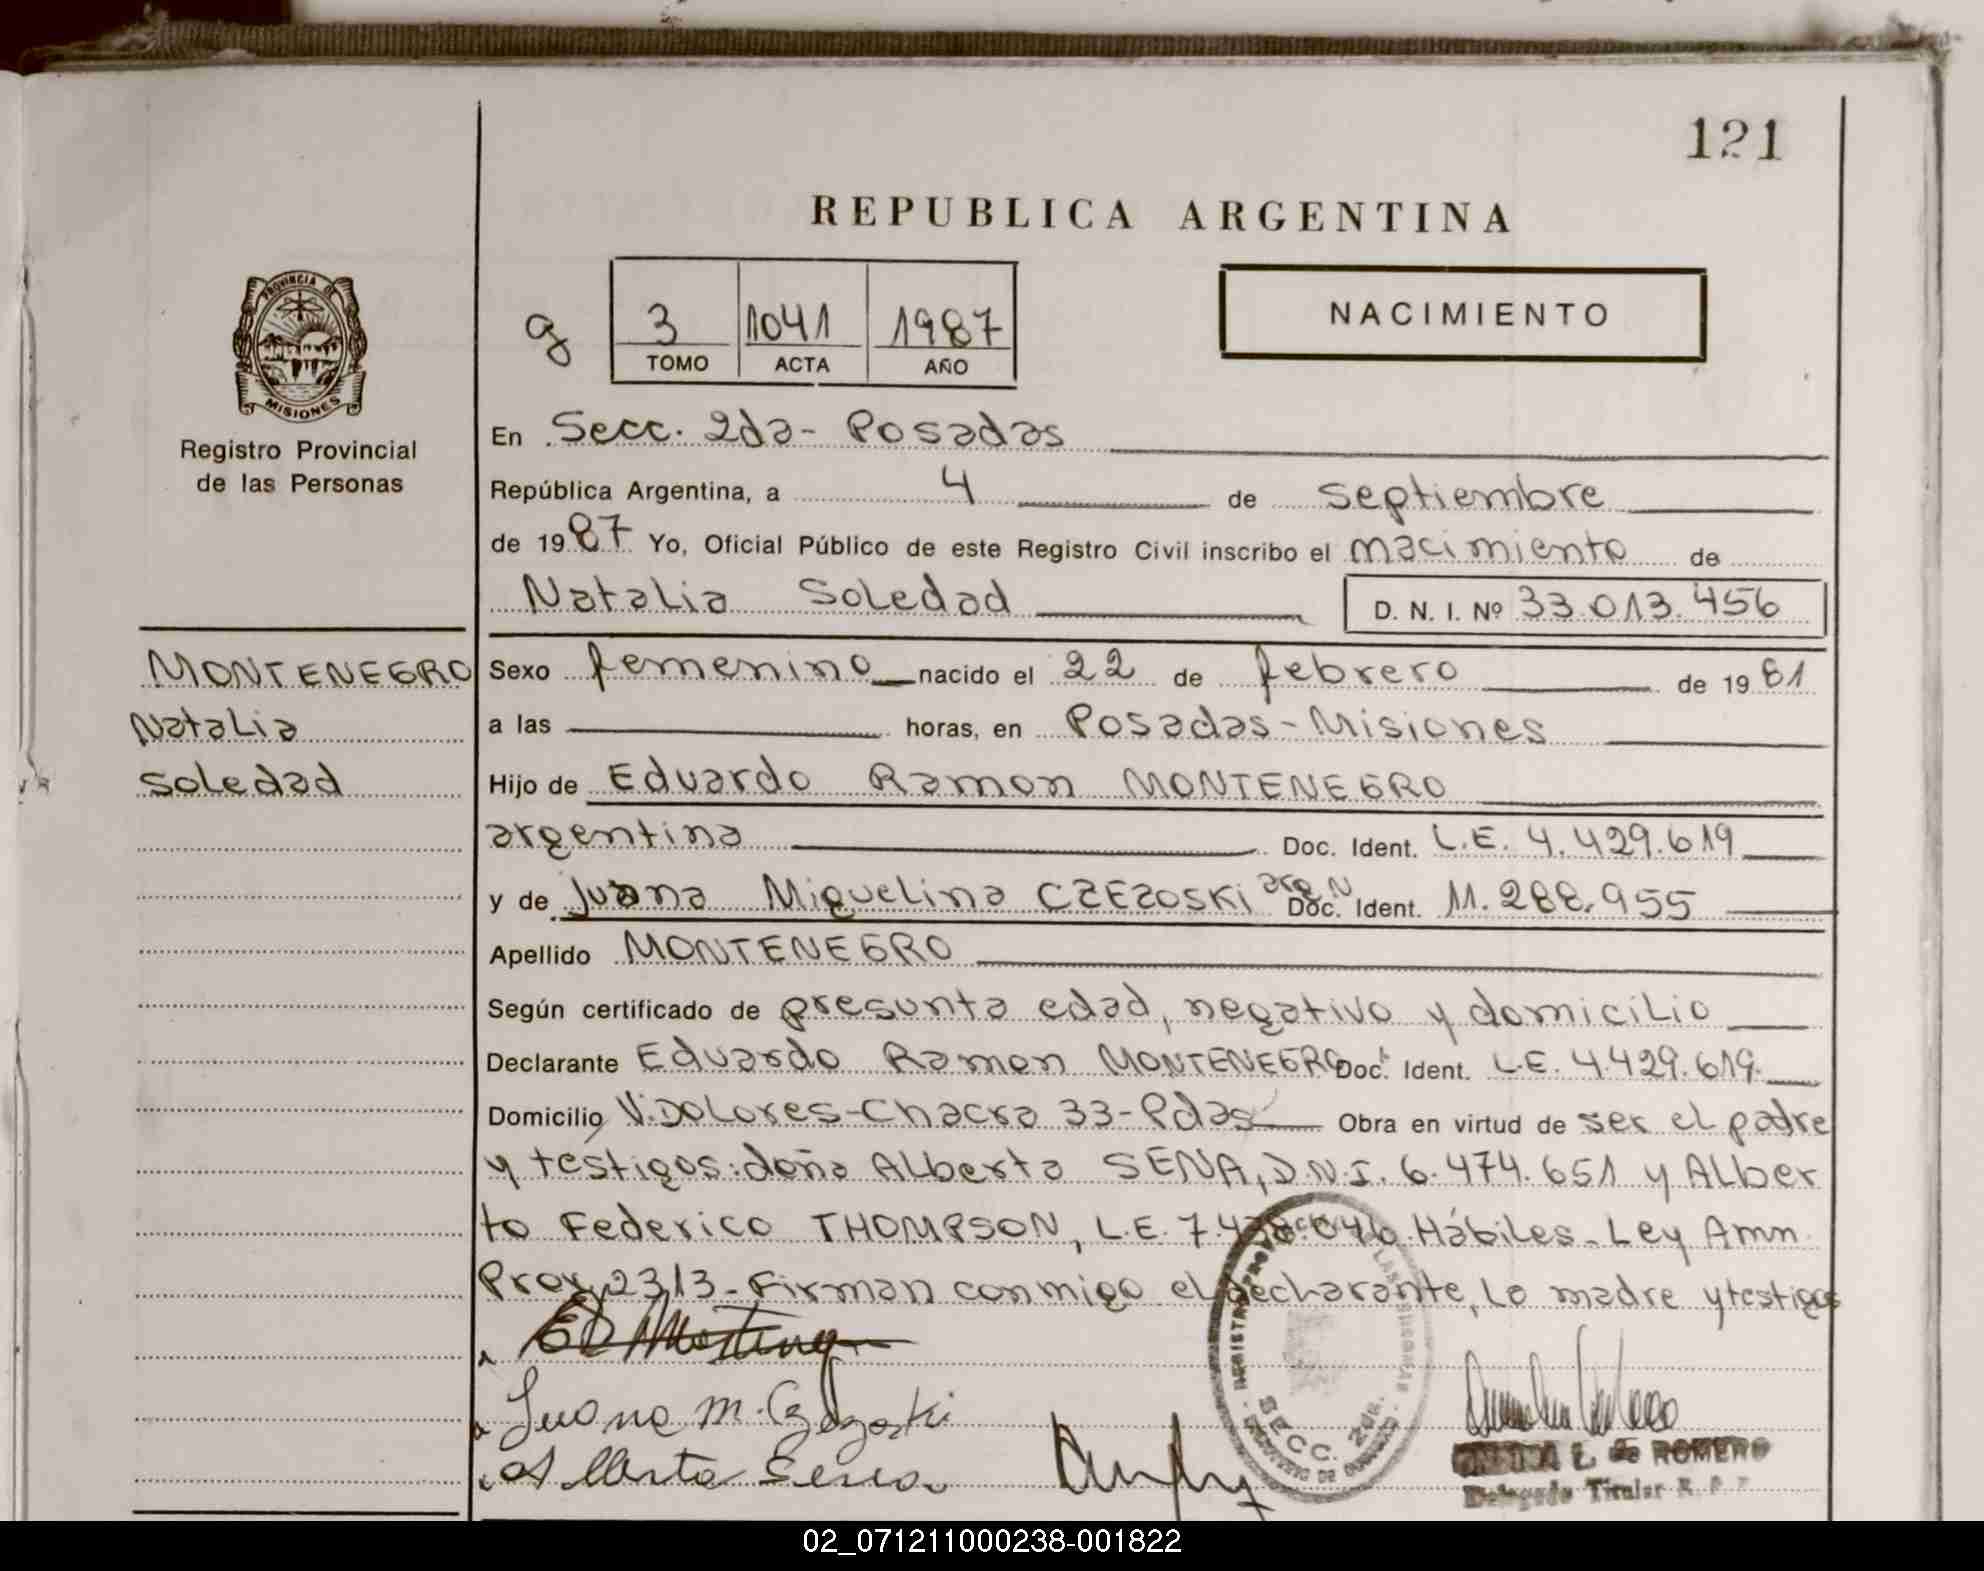 121
REPUBLICA ARGENTINA
PROVINCIA DE
MISIONES
Registro Provincial
de las Personas
3 1041 1987
TOMO ACTA AÑO
NACIMIENTO
En Secc. 2da- Posadas
República Argentina, a 4 de septiembre
de 1987 Yo, Oficial Público de este Registro Civil inscribo el nacimiento de
Natalia Soledad D. N. I. Nº 33.013.456
MONTENEGRO
Natalia
Soledad
Sexo femenino nacido el 22 de febrero de 1981
a las horas, en Posadas-Misiones
Hijo de Eduardo Ramon MONTENEGRO
argentina Doc. Ident. L.E. 4.429.619
y de Juana Miguelina CZEZOSKI arg. N Doc. Ident. 11.288.955
Apellido MONTENEGRO
Según certificado de presunta edad, negativo y domicilio
Declarante Eduardo Ramon MONTENEGRO Doc. Ident. L.E. 4.429.619.
Domicilio V. DOLores-Chacra 33-Pdas Obra en virtud de ser el padre
y testigos: doña Alberta SENA, D.N.I. 6.474.651 y Alber
to Federico THOMPSON, L.E. 7. Hábiles. Ley Amn.
Prov. 2313-Firman conmigo el declarante, la madre y testigos
Juana M. Czezoski
Alberta Sena
SECC. 2da.
L. de ROMERO
Delegado Titular R. P. P.
02_071211000238-001822